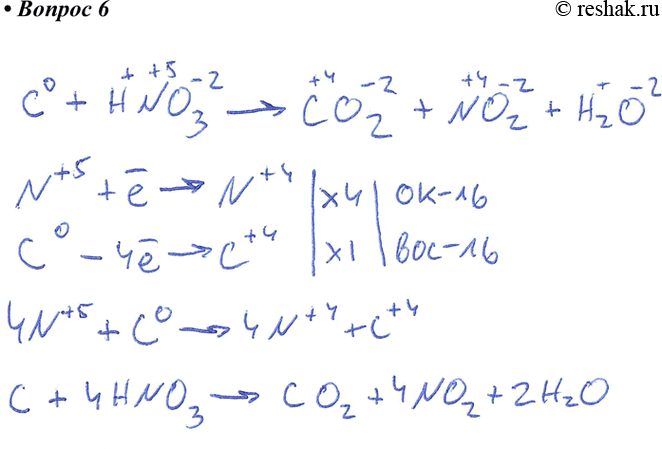 • Вопрос 6
© reshak.ru
C⁰ + H⁺N⁺⁵O₃⁻² → C⁺⁴O₂⁻² + N⁺⁴O₂⁻² + H₂⁺O⁻²
N⁺⁵ + ē → N⁺⁴ | x4 | ок-ль
C⁰ - 4ē → C⁺⁴ | x1 | вос-ль
4N⁺⁵ + C⁰ → 4N⁺⁴ + C⁺⁴
C + 4HNO₃ → CO₂ + 4NO₂ + 2H₂O